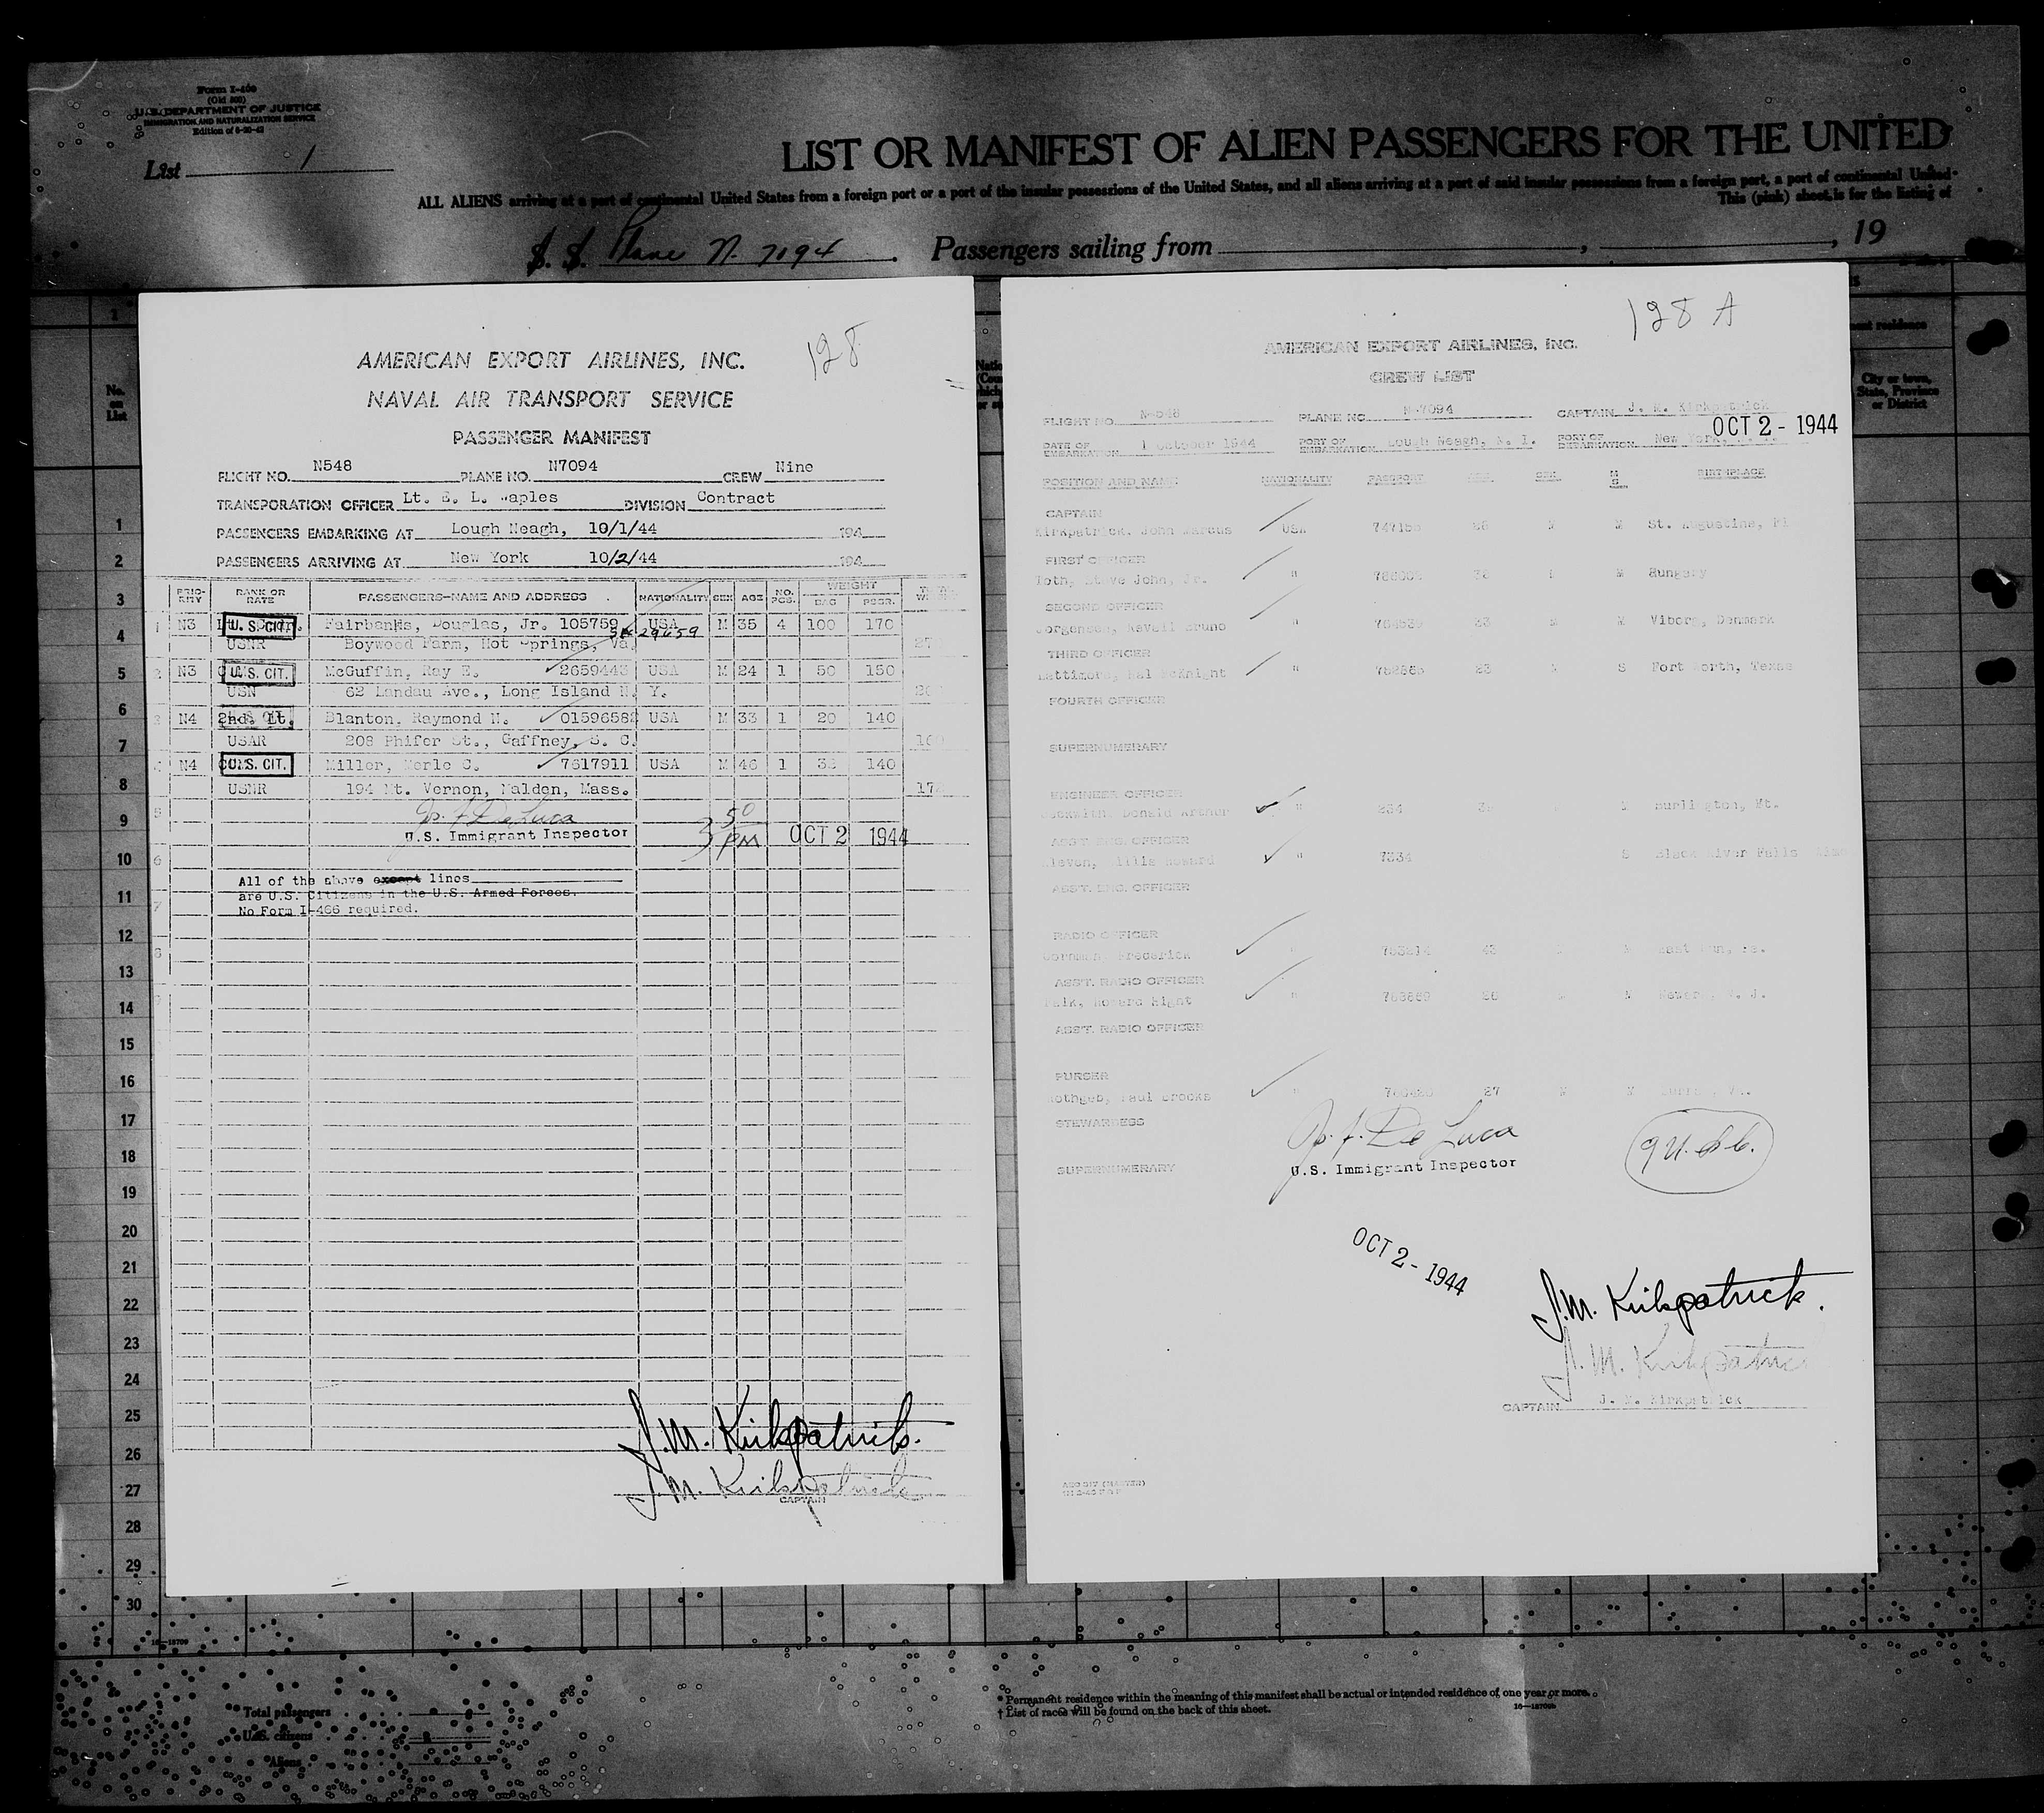 Form I-466
(Old 500)
U.S. DEPARTMENT OF JUSTICE
IMMIGRATION AND NATURALIZATION SERVICE
Edition of 6-20-42
List 1
LIST OR MANIFEST OF ALIEN PASSENGERS FOR THE UNITED
ALL ALIENS arriving at a port of continental United States from a foreign port or a port of the insular possessions of the United States, and all aliens arriving at a port of said insular possessions from a foreign port, a port of continental United
This (pink) sheet is for the listing of
S. S. Plane N. 7094. Passengers sailing from , , 19
No. on List
128
AMERICAN EXPORT AIRLINES, INC.
NAVAL AIR TRANSPORT SERVICE
PASSENGER MANIFEST
FLIGHT NO. N548 PLANE NO. N7094 CREW Nine
TRANSPORATION OFFICER Lt. E. L. Waples DIVISION Contract
PASSENGERS EMBARKING AT Lough Neagh, 10/1/44 194
PASSENGERS ARRIVING AT New York 10/2/44 194
PRIO-RITY RANK OR RATE PASSENGERS-NAME AND ADDRESS NATIONALITY SEX AGE NO. PCS. WEIGHT BAG PSGR.
1 N3 U. S. CIT. Fairbanks, Douglas, Jr. 105759 USA M 35 4 100 170
USNR Boywood Farm, Hot Springs, Va. 29659 27
2 N3 U. S. CIT. McGuffin, Ray E. 2659443 USA M 24 1 50 150
USN 62 Landau Ave., Long Island N. Y.
3 N4 2nd. Lt. Blanton, Raymond N. 01596582 USA M 33 1 20 140
USAR 208 Phifer St., Gaffney, S. C. 160
4 N4 U.S. CIT. Miller, Merle C. 7617911 USA M 46 1 32 140
USNR 194 Mt. Vernon, Malden, Mass. 172
Jos. F. De Luca
U.S. Immigrant Inspector 3 50 PM OCT 2 1944
All of the above except lines
are U.S. Citizens in the U.S. Armed Forces.
No Form I-466 required.
J.M. Kirkpatrick.
J.M. Kirkpatrick
CAPTAIN
128 A
AMERICAN EXPORT AIRLINES, INC.
CREW LIST
FLIGHT NO. N-548 PLANE NO. N-7094 CAPTAIN J. M. Kirkpatrick
OCT 2 - 1944
DATE OF EMBARKATION 1 October 1944 PORT OF EMBARKATION Lough Neagh, N. I. PORT OF DEBARKATION New York,
POSITION AND NAME NATIONALITY PASSPORT AGE SEX M S BIRTHPLACE
CAPTAIN
Kirkpatrick, John Marcus USA 747155 28 M M St. Augustine, Fl
FIRST OFFICER
Toth, Steve John, Jr. " M Hungary
SECOND OFFICER
Jorgenson, Bruno " 23 M M Viborg, Denmark
THIRD OFFICER
Lattimore, Hal McKnight " 23 S Fort Worth, Texas
FOURTH OFFICER
SUPERNUMERARY
ENGINEER OFFICER
Beckwith, Donald Arthur " 234 M Burlington, Vt.
ASST. ENG. OFFICER
Willis Howard " 7334 S Black River Falls
ASST. ENG. OFFICER
RADIO OFFICER
Gorman, Frederick " 43
ASST. RADIO OFFICER
Falk, Howard " 26 M M Newark, N. J.
ASST. RADIO OFFICER
PURSER
Rothgeb, Paul Brooks " 27 M M
STEWARDESS
Jos. F. De Luca
SUPERNUMERARY
U.S. Immigrant Inspector
9 U.S.C.
OCT 2 - 1944
J.M. Kirkpatrick.
J. M. Kirkpatrick
CAPTAIN J. M. Kirkpatrick
City or town, State, Province or District
1
2
3
4
5
6
7
8
9
10
11
12
13
14
15
16
17
18
19
20
21
22
23
24
25
26
27
28
29
30
16-18709
Total passengers
U.S. citizens
Aliens
* Permanent residence within the meaning of this manifest shall be actual or intended residence of one year or more.
† List of races will be found on the back of this sheet.